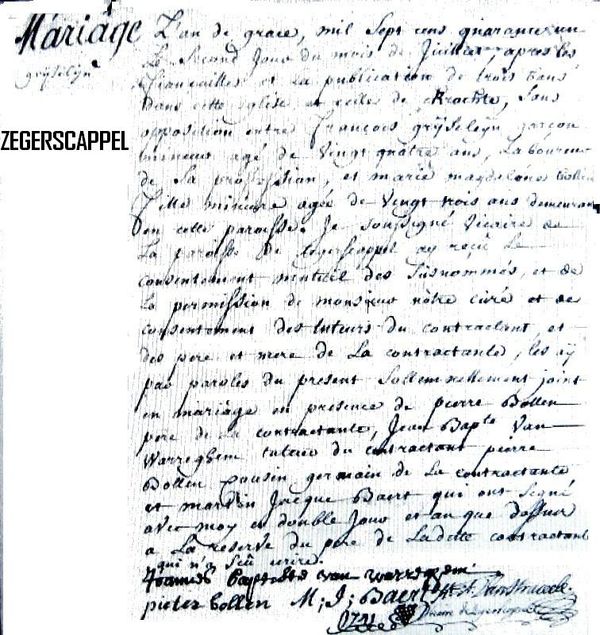 Mariage
grÿselÿn
ZEGERSCAPPEL
L'an de grace, mil Sept cens quarante un
Le Second Jour du mois de Juillet, apres les
fiançailles et La publication de trois bans
dans cette eglise et celles de Krochte, Sans
opposition entre François grÿselÿn garçon
mineur agé de Vingt quatre ans, Laboureur
de Sa profession, et marie magdelene Bollen
fille mineure agée de Vingt trois ans demeurant
en cette paroisse. Je Soussigné Vicaire de
La paroisse de Segerscappel ay reçu Le
consentement mutuel des Susnommés, et de
La permission de monsieur nôtre curé et de
consentement des tuteurs du contractant, et
des pere et mere de La contractante, les aÿ
par paroles du present Sollemnellement joint
en mariage en presence de pierre Bollen
pere de La contractante, Jean Bapte Van
Warreghem tuteur du contractant pierre
Bollen cousin germain de La contractante
et martin Jacque Baert qui ont Signé
avec moy en double Jour et an que dessus
a La reserve du pere de Ladite contractante
qui n'a Sceu ecrire.
Joannes Baptiste van warregem
pieter bollen M: J: Baert
1741